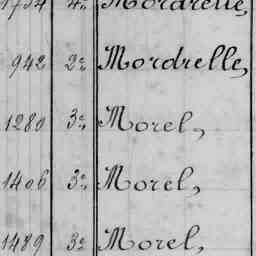 1754 4º Mordrelle,
942 2º Mordrelle,
1280 3º Morel,
1406 3º Morel,
1489 3º Morel,